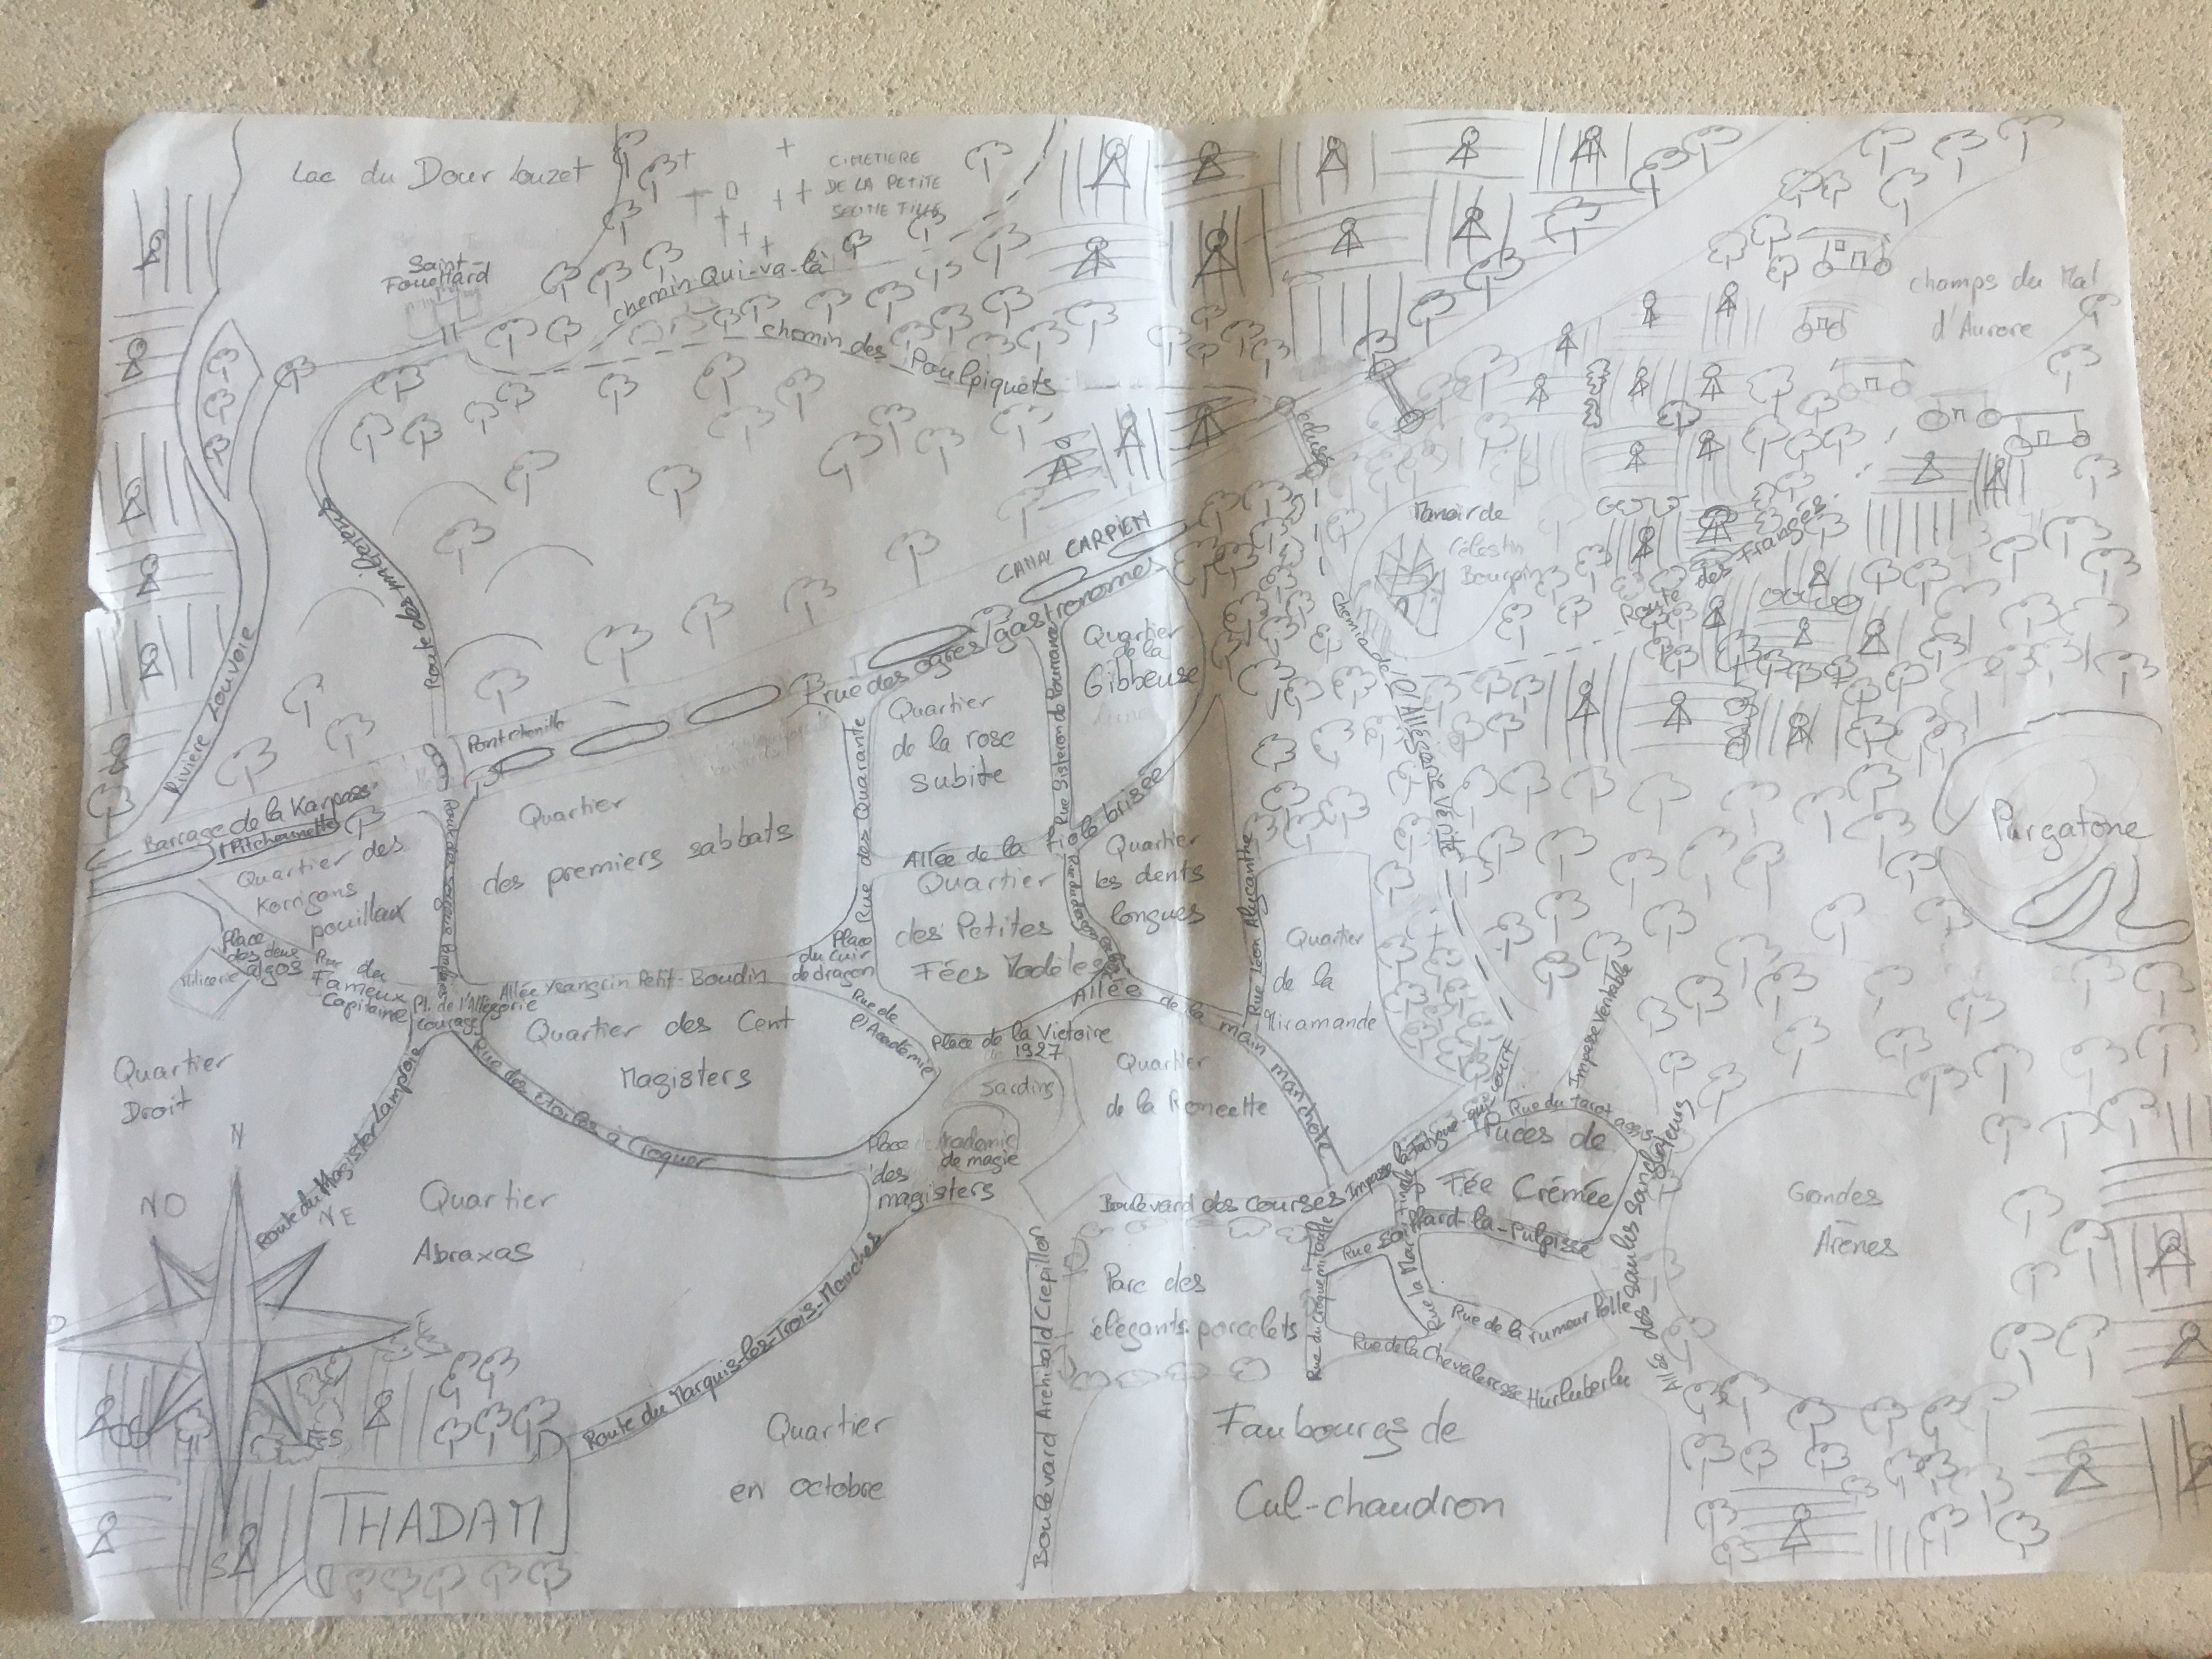 Lac du Dour Louzet
CIMETIERE
DE LA PETITE
Saint-
Fouettard
chemin Qui-va-là
chemin des Poulpiquets
champs du Mal
d'Aurore
écluse
Manoir de
Célestin
Bourpin
Route des Franges
chemin de l'Allégorie Vérité
Purgatone
CANAL CARPIEN
rue des ogres/gastronomes
Route des
Rivière Louvoie
Barrage de la Karpass
Quartier des
Korrigans
pouilleux
Quartier
des premiers sabbats
Rue des Quarante
Quartier
de la rose
subite
Rue Sisteron de
Quartier
de la
Gibbeuse
Allée de la
brisée
Quartier
des Petites
Fées Modèles
Quartier
les dents
longues
Rue Léon Alycanthe
Quartier
de la
Miramande
Place
des deux
algos
Milicerie
Rue du
Fameux
Capitaine
Pl. de l'Allégorie
courage
Allée Ysangrin Petit-Boudin
Place
du cuir
de dragon
Rue de
l'Académie
Quartier des Cent
Magisters
Place de la Victoire
1927
Jardins
Allée de la main manchote
Quartier
de la Roncette
Impasse véritable
Quartier
Droit
Route du Magister Lamproie
Rue des étoiles à Croquer
Place
des
magisters
Académie
de magie
Boulevard des courses
Impasse la Fatigue-qui-court
Rue du tarot assis
Puces de
Fée Crémée
Allée des saules Sanglateurs
Grandes
Arènes
N
NO
NE
Quartier
Abraxas
Route du Marquis-les-Trois-Manches
Boulevard Archibald Crepillon
Parc des
élégants porcelets
Rue du Croquemitaine
Rue la
Rue de la rumeur folle
Rue de la Chevaleresse Hurluberlu
Quartier
en octobre
Faubourgs de
Cul-chaudron
O
E
SO
ES
S
THADAM